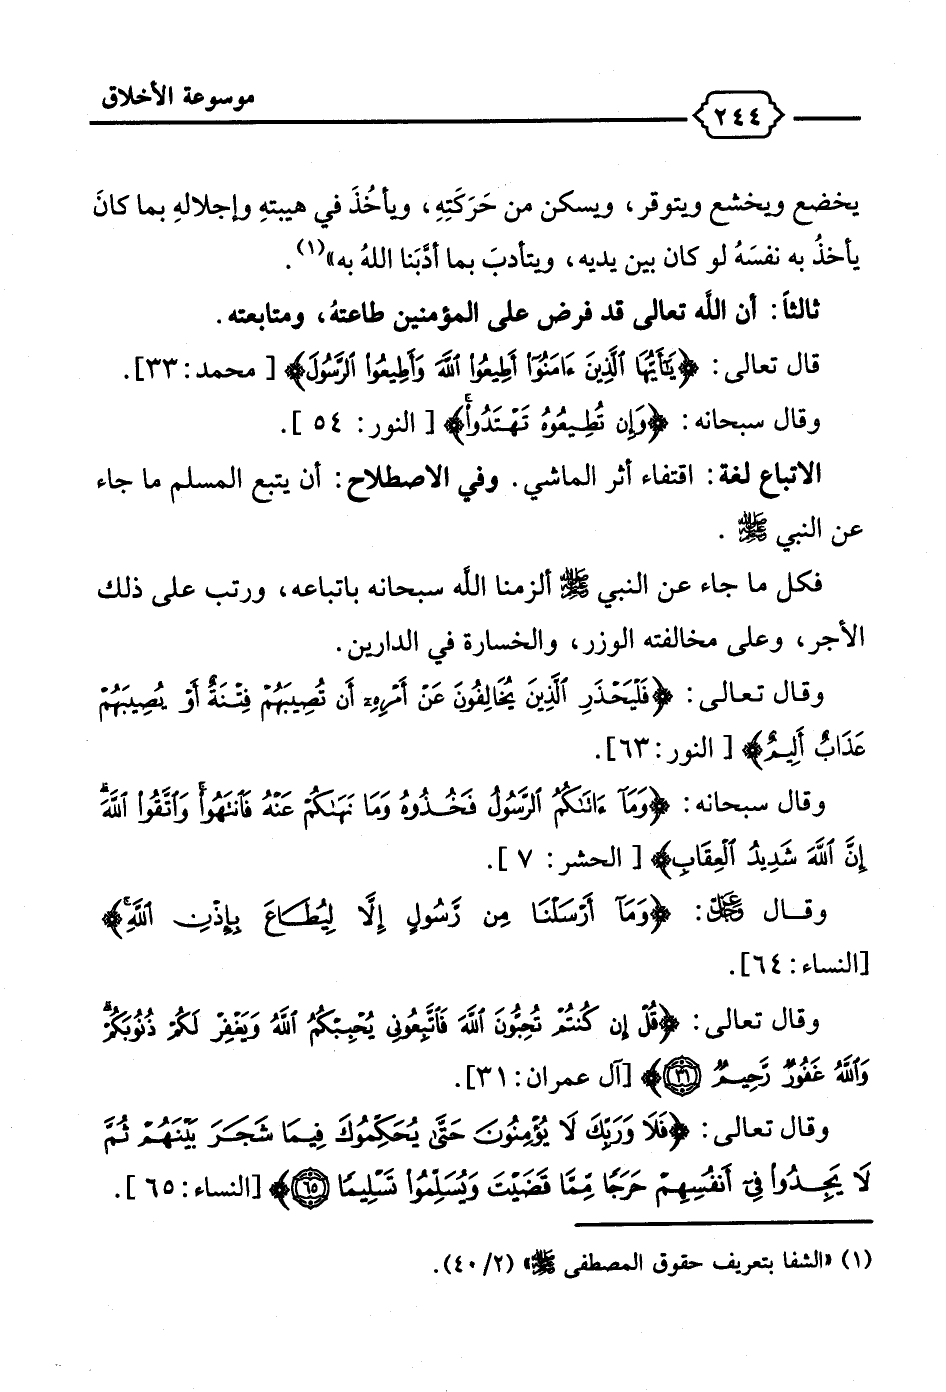 موسوعة الأخلاق
٢٤٤
يخضع ويخشع ويتوقر، ويسكن من حَرَكَتِهِ، ويأخُذَ في هيبتهِ وإجلالهِ بما كانَ
يأخذُ به نفسَهُ لو كان بين يديه، ويتأدبَ بما أدَّبَنا اللهُ به»(١).
ثالثاً: أن اللَّه تعالى قد فرض على المؤمنين طاعتهُ، ومتابعته.
قال تعالى: ﴿يَٰٓأَيُّهَا ٱلَّذِينَ ءَامَنُوٓا۟ أَطِيعُوا۟ ٱللَّهَ وَأَطِيعُوا۟ ٱلرَّسُولَ﴾ [ محمد: ٣٣].
وقال سبحانه: ﴿وَإِن تُطِيعُوهُ تَهْتَدُوا۟ۚ﴾ [ النور: ٥٤ ].
الاتباع لغة: اقتفاء أثر الماشي. وفي الاصطلاح: أن يتبع المسلم ما جاء
عن النبي ﷺ .
فكل ما جاء عن النبي ﷺ ألزمنا اللَّه سبحانه باتباعه، ورتب على ذلك
الأجر، وعلى مخالفته الوزر، والخسارة في الدارين.
وقال تعالى: ﴿فَلْيَحْذَرِ ٱلَّذِينَ يُخَالِفُونَ عَنْ أَمْرِهِۦٓ أَن تُصِيبَهُمْ فِتْنَةٌ أَوْ يُصِيبَهُمْ
عَذَابٌ أَلِيمٌ﴾ [ النور: ٦٣].
وقال سبحانه: ﴿وَمَآ ءَاتَىٰكُمُ ٱلرَّسُولُ فَخُذُوهُ وَمَا نَهَىٰكُمْ عَنْهُ فَٱنتَهُوا۟ۚ وَٱتَّقُوا۟ ٱللَّهَۖ
إِنَّ ٱللَّهَ شَدِيدُ ٱلْعِقَابِ﴾ [ الحشر: ٧ ].
وقال ﷻ: ﴿وَمَآ أَرْسَلْنَا مِن رَّسُولٍ إِلَّا لِيُطَاعَ بِإِذْنِ ٱللَّهِۚ﴾
[النساء: ٦٤].
وقال تعالى: ﴿قُلْ إِن كُنتُمْ تُحِبُّونَ ٱللَّهَ فَٱتَّبِعُونِى يُحْبِبْكُمُ ٱللَّهُ وَيَغْفِرْ لَكُمْ ذُنُوبَكُمْۗ
وَٱللَّهُ غَفُورٌ رَّحِيمٌ ٣١﴾ [آل عمران: ٣١].
وقال تعالى: ﴿فَلَا وَرَبِّكَ لَا يُؤْمِنُونَ حَتَّىٰ يُحَكِّمُوكَ فِيمَا شَجَرَ بَيْنَهُمْ ثُمَّ
لَا يَجِدُوا۟ فِىٓ أَنفُسِهِمْ حَرَجًا مِّمَّا قَضَيْتَ وَيُسَلِّمُوا۟ تَسْلِيمًا ٦٥﴾ [النساء: ٦٥].
(١) «الشفا بتعريف حقوق المصطفى ﷺ» (٢/ ٤٠).